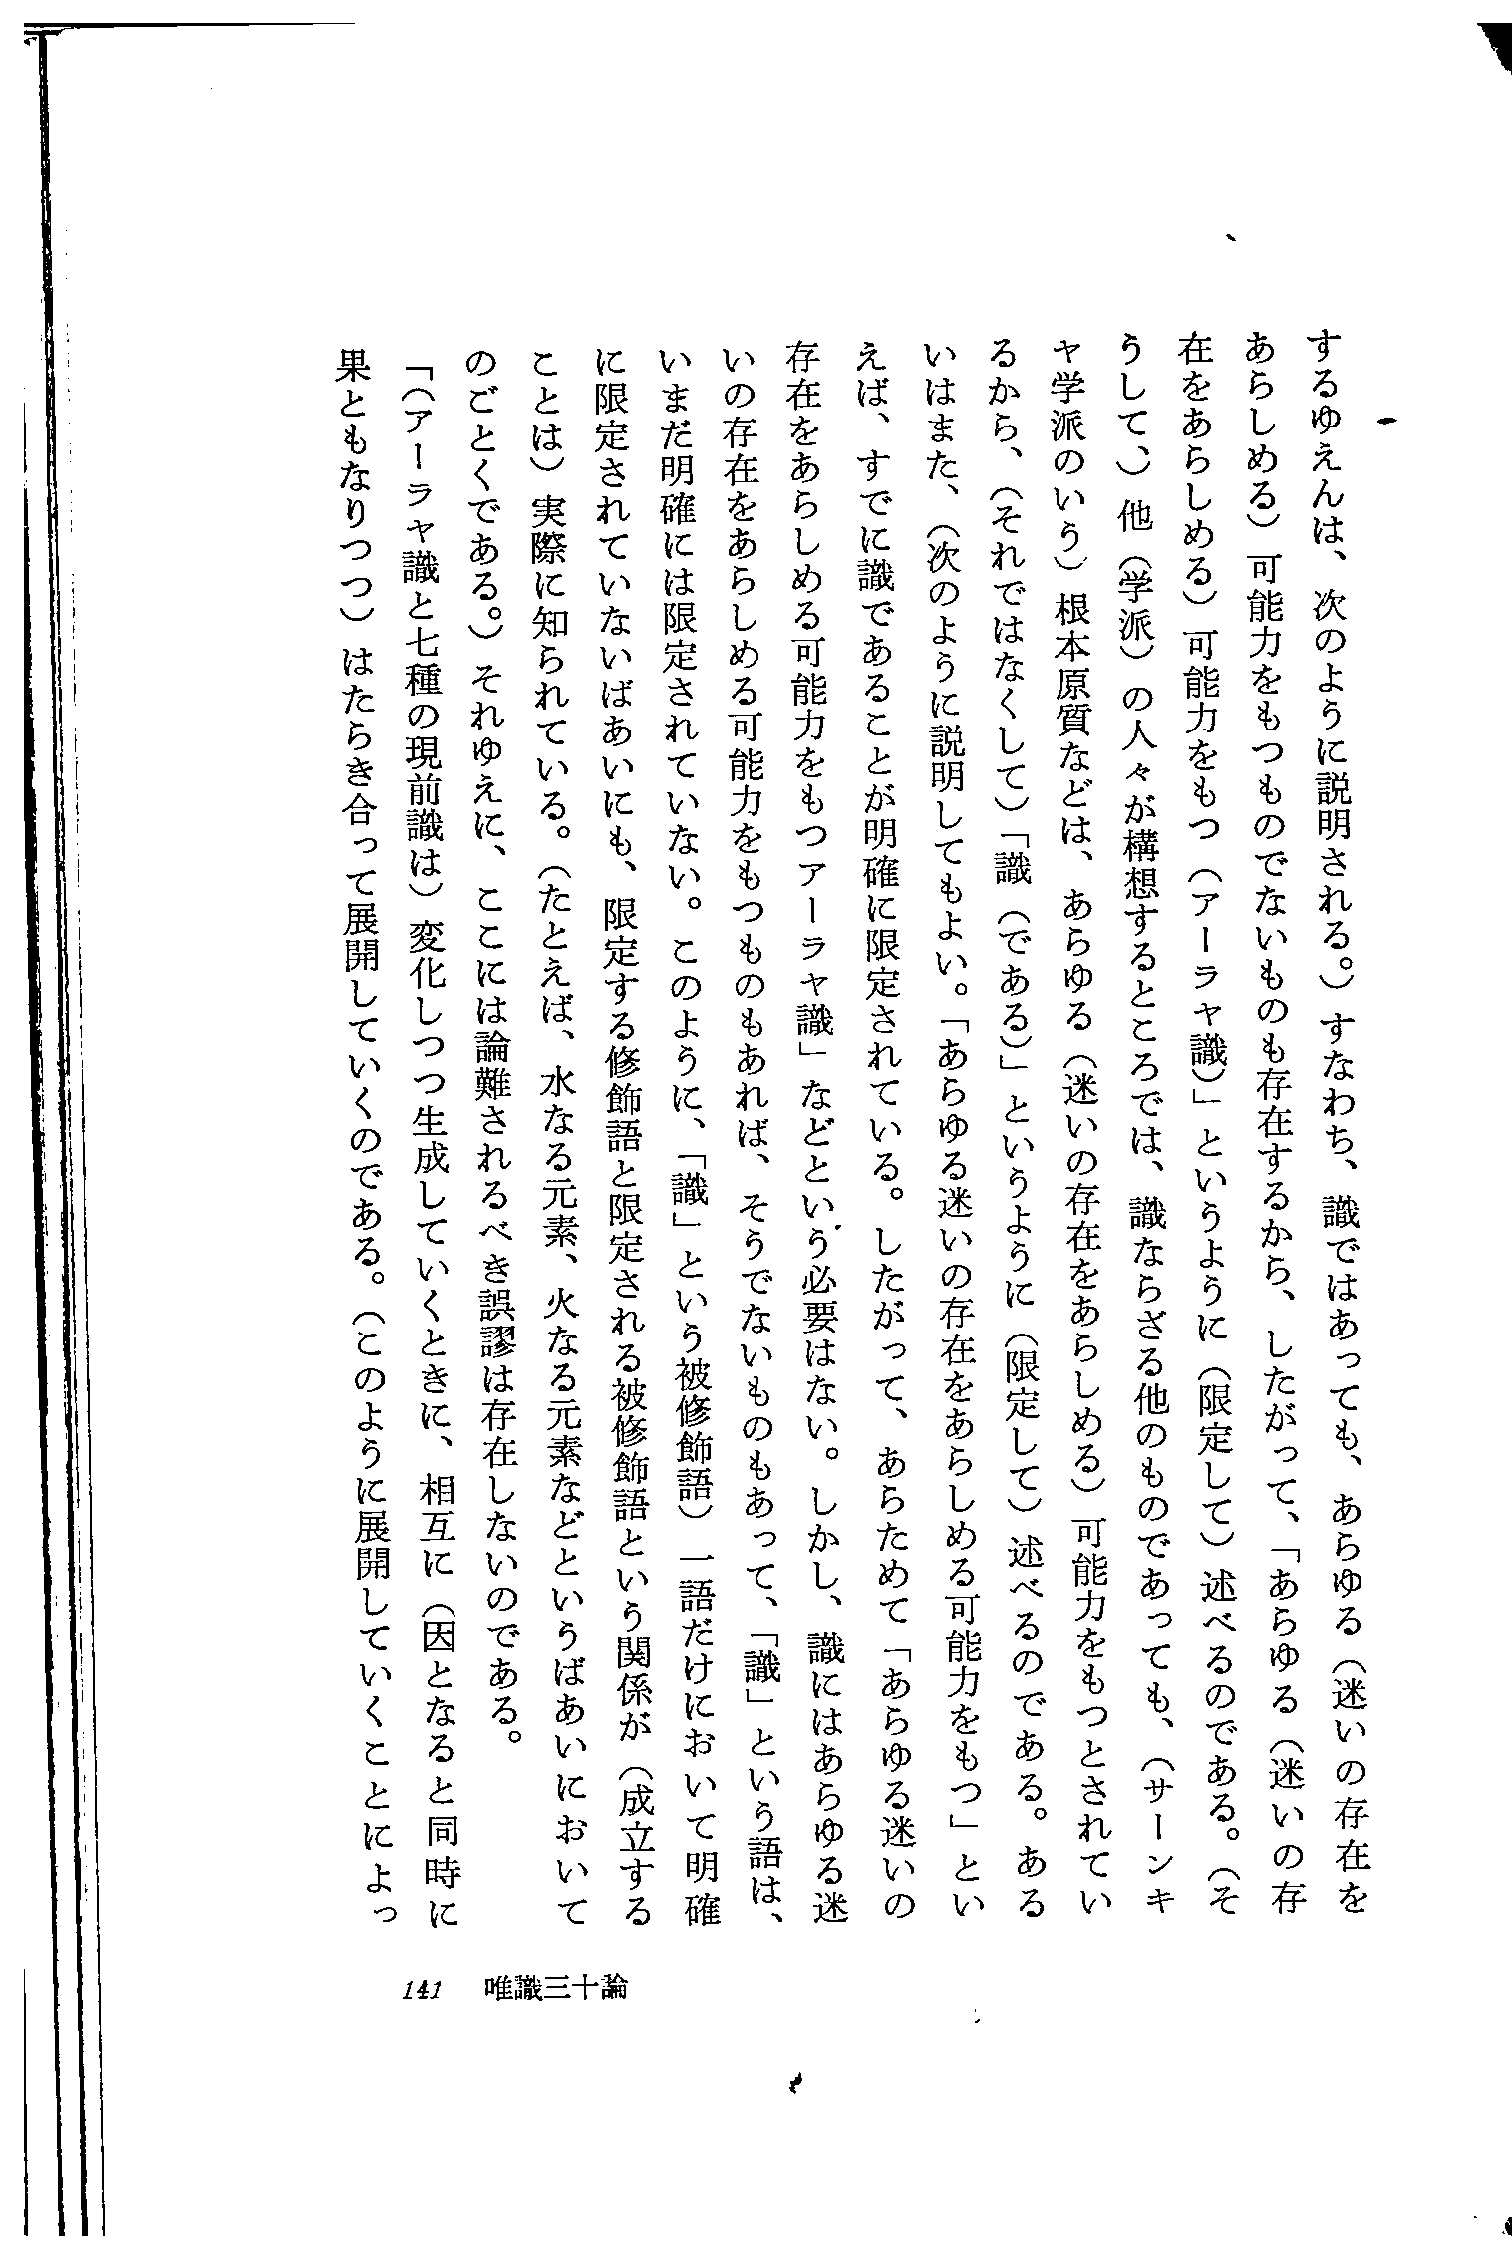 するゆえんは、次のように説明される。）すなわち、識ではあっても、あらゆる（迷いの存在を
あらしめる）可能力をもつものでないものも存在するから、したがって、「あらゆる（迷いの存
在をあらしめる）可能力をもつ（アーラヤ識）」というように（限定して）述べるのである。（そ
うして、）他（学派）の人々が構想するところでは、識ならざる他のものであっても、（サーンキ
ヤ学派のいう）根本原質などは、あらゆる（迷いの存在をあらしめる）可能力をもつとされてい
るから、（それではなくして）「識（である）」というように（限定して）述べるのである。ある
いはまた、（次のように説明してもよい。「あらゆる迷いの存在をあらしめる可能力をもつ」とい
えば、すでに識であることが明確に限定されている。したがって、あらためて「あらゆる迷いの
存在をあらしめる可能力をもつアーラヤ識」などという必要はない。しかし、識にはあらゆる迷
いの存在をあらしめる可能力をもつものもあれば、そうでないものもあって、「識」という語は、
いまだ明確には限定されていない。このように、「識」という被修飾語）一語だけにおいて明確
に限定されていないばあいにも、限定する修飾語と限定される被修飾語という関係が（成立する
ことは）実際に知られている。（たとえば、水なる元素、火なる元素などというばあいにおいて
のごとくである。）それゆえに、ここには論難されるべき誤謬は存在しないのである。
「（アーラヤ識と七種の現前識は）変化しつつ生成していくときに、相互に（因となると同時に
果ともなりつつ）はたらき合って展開していくのである。（このように展開していくことによっ
141 唯識三十論